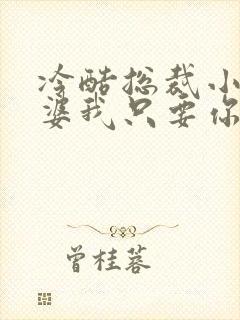 冷酷总裁小
婆我只要你
曾桂蓉